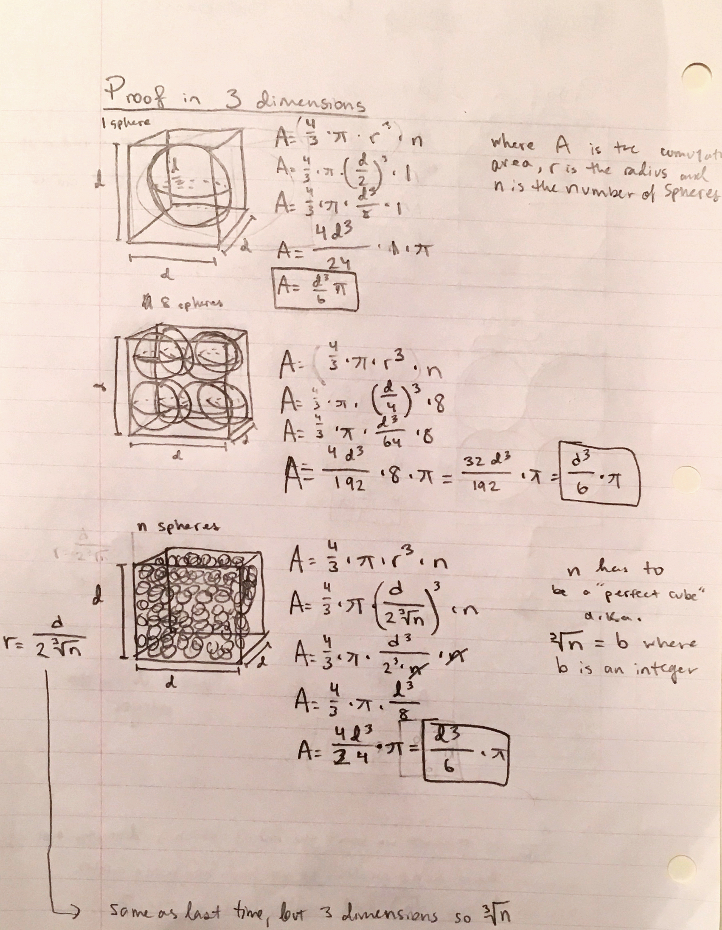 Proof in 3 dimensions
1 sphere
A = 4/3 · π · r³ · n
A = 4/3 · π · (d/2)³ · 1
A = 4/3 · π · d³/8 · 1
A = 4d³/24 · 1 · π
A = d³/6 π
d
d
d
d
where A is the cumulat
area, r is the radius and
n is the number of spheres
8 spheres
A = 4/3 · π · r³ · n
A = 4/3 · π · (d/4)³ · 8
A = 4/3 · π · d³/64 · 8
A = 4d³/192 · 8 · π = 32d³/192 · π = d³/6 · π
d
d
n spheres
A = 4/3 · π · r³ · n
A = 4/3 · π (d/2∛n)³ · n
A = 4/3 · π · d³/2³·n · n
A = 4/3 · π · d³/8
A = 4d³/24 · π = d³/6 · π
d
d
d
r = d/2∛n
n has to
be a "perfect cube"
a.k.a.
∛n = b where
b is an integer
same as last time, but 3 dimensions so ∛n